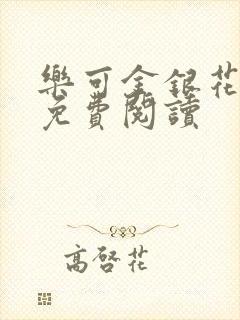 樂可金銀花
免費閱讀
高啓花